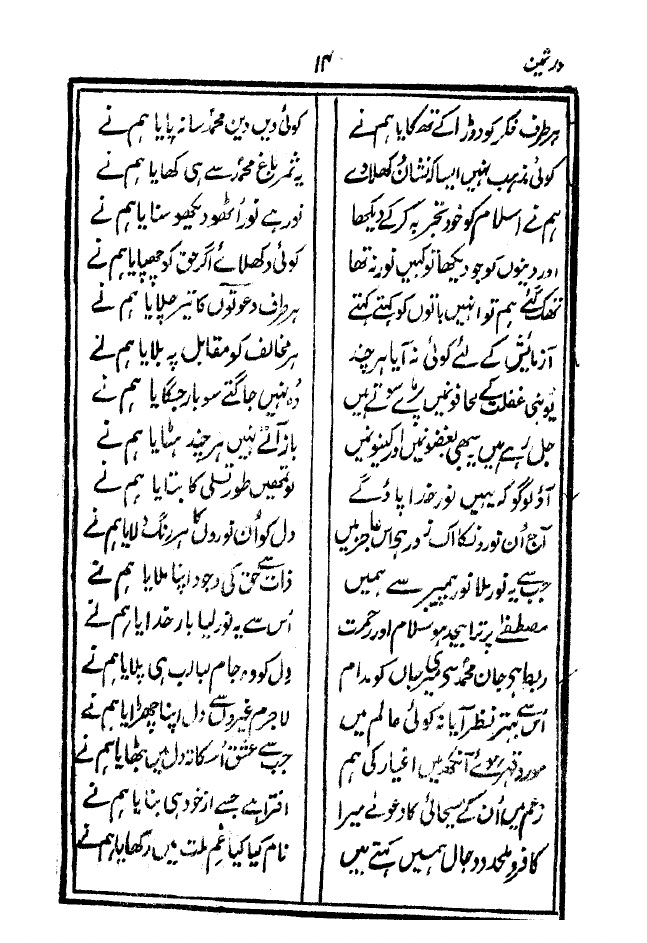 در ثمین
۱۴
ہر طرف فکر کو دوڑا کے تھکایا ہم نے
کوئی دیں دین محمدؐ سا نہ پایا ہم نے
کوئی مذہب نہیں ایسا کہ نشاں دکھلاوے
یہ ثمر باغ محمدؐ سے ہی کھایا ہم نے
ہم نے اسلام کو خود تجربہ کر کے دیکھا
نور ہے نور اٹھو دیکھو سنایا ہم نے
اور دینوں کو جو دیکھا تو کہیں نور نہ تھا
کوئی دکھلائے اگر حق کو چھپایا ہم نے
تھک گئے ہم تو انہیں باتوں کو کہتے کہتے
ہر طرف دعوتوں کا تیر چلایا ہم نے
آزمائش کے لئے کوئی نہ آیا ہر چند
ہر مخالف کو مقابل پہ بلایا ہم نے
یونہی غفلت کے لحافونمیں پڑے سوتے ہیں
وہ نہیں جاگتے سو بار جگایا ہم نے
جل رہے ہیں یہ سبھی بغضونمیں اور کینونمیں
باز آتے نہیں ہر چند ہٹایا ہم نے
آؤ لوگو کہ یہیں نور خدا پاؤ گے
لو تمھیں طور تسلی کا بتایا ہم نے
آج ان نورونکا اک زور ہی اس عاجز میں
دل کو ان نوروں کا ہر رنگ دلایا ہم نے
جب سے یہ نور ملا نور پیمبر سے ہمیں
ذات سے حق کی وجود اپنا ملایا ہم نے
مصطفیٰ پر ترا بیحد ہو سلام اور رحمت
اس سے یہ نور لیا بار خدایا ہم نے
ربط ہی جان محمدؐ سی میری جاں کو مدام
دل کو وہ جام لبالب ہی پلایا ہم نے
اس سے بہتر نظر آیا نہ کوئی عالم میں
لاجرم غیروں سے دل اپنا چھڑایا ہم نے
مورد قہر ہوئے آنکھ میں اغیار کی ہم
جب سے عشق اسکا تہ دل میں بٹھایا ہم نے
زعم میں ان کے مسیحائی کا دعوٰے میرا
افترا ہے جسے از خود ہی بنایا ہم نے
کافر و ملحد و دجال ہمیں کہتے ہیں
نام کیا کیا غم ملت میں رکھایا ہم نے